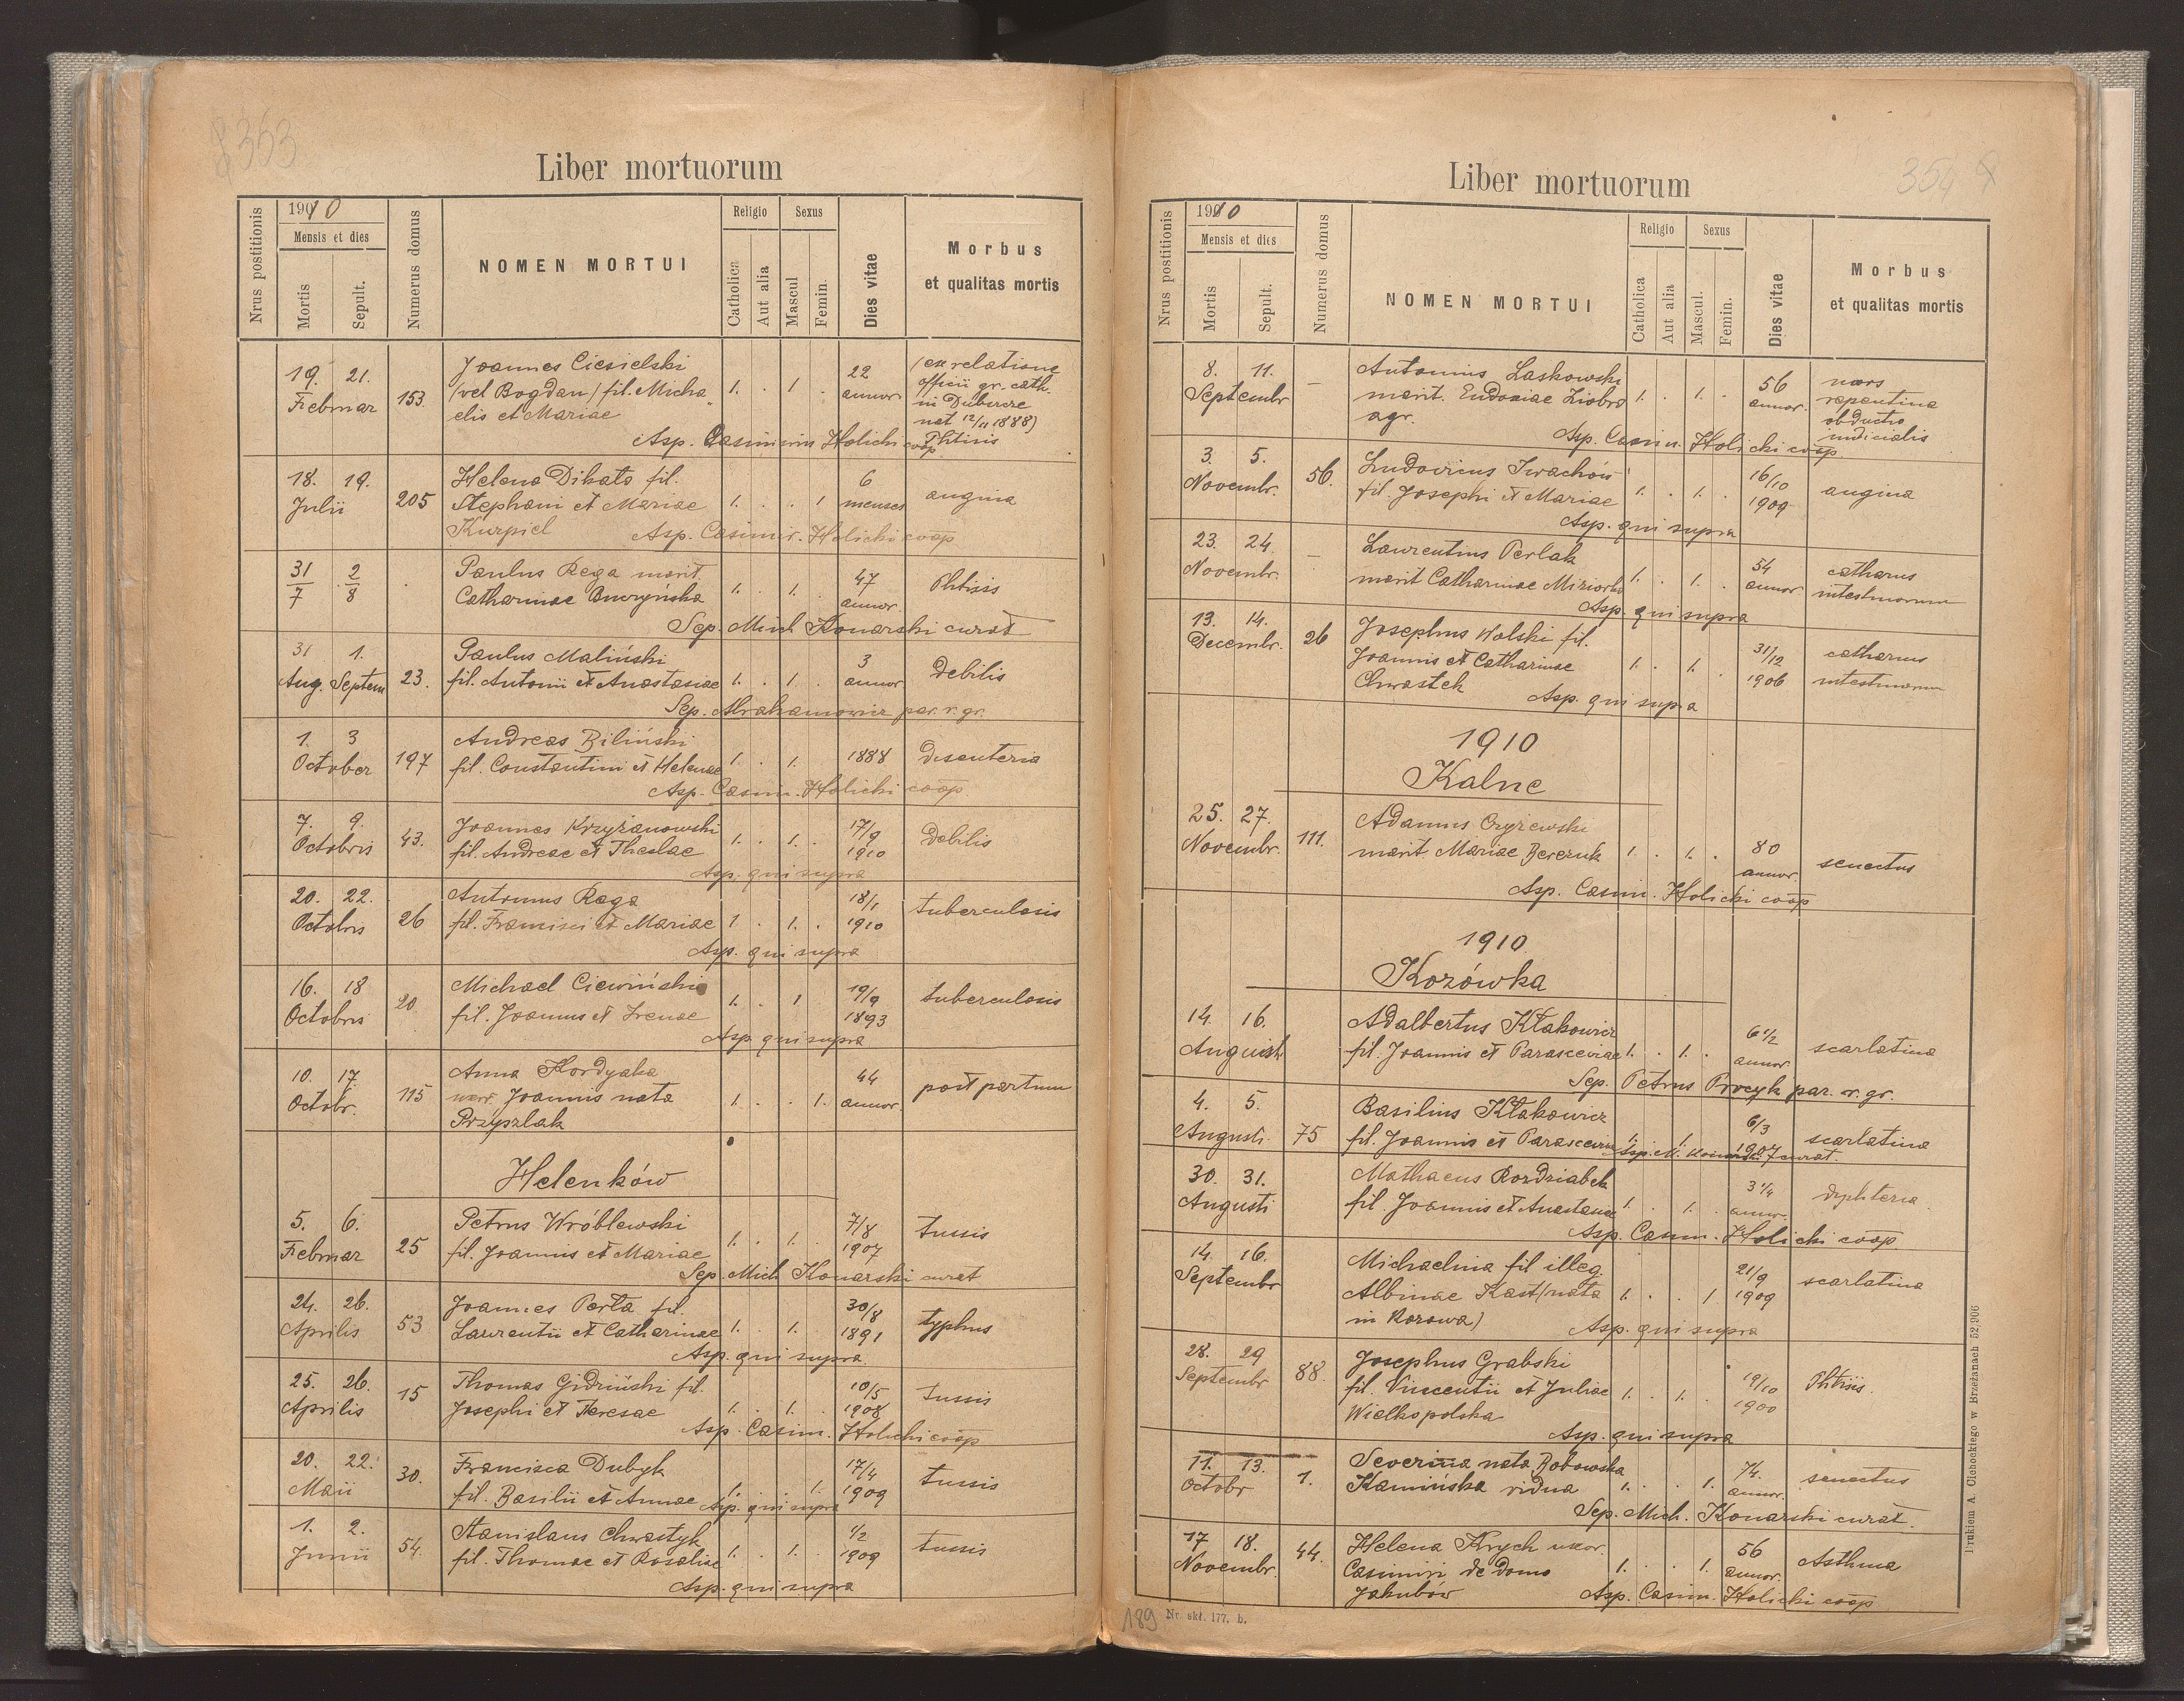 363
Liber mortuorum
Nrus postitionis
1910
Mensis et dies
Mortis
Sepult.
Numerus domus
NOMEN MORTUI
Religio
Catholica
Aut alia
Sexus
Mascul
Femin.
Dies vitae
Morbus
et qualitas mortis
19. 21. Joannes Ciesielski 22 (ex relatione
Februar 153 (vel Bogdan) fil. Micha 1. . 1 . annor officii gr. cath.
elis et Mariae in Dubcrcze
nat 12/11 1888)
Asp. Casimirus Holicki coop Phtisis
18. 19. Helena Dikało fil. 6
Julii 205 Stephani et Mariae 1. . . 1 menses angina
Kurpiel Asp. Casimir. Holicki coop
31/7 2/8 Paulus Rega marit. 47 Phtisis
Catharinae Onczyńska 1. . 1. . annor.
Sep. Mich Konarski curat
31 1. Paulus Maliński 3
Aug. Septem 23. fil. Antonii et Anastasiae 1. . 1. . annor Debilis
Sep. Abrahamowicz par. r. gr.
1. 3 Andreas Biliński
October 197 fil. Constantini et Helenae 1. . 1. 1888 Disenteria
Asp. Casim. Holicki coop.
7. 9. Joannes Krzyżanowski 17/9
Octobris 43. fil. Andreae et Theclae 1. . 1. . 1910 Debilis
Asp. qui supra
20. 22. Antonius Rega 18/1 tuberculosis
Octobris 26 fil. Francisci et Mariae 1 . 1. . 1910
Asp. qui supra
16. 18 Michael Ciewiński 19/9 tuberculosis
Octobris 20 fil. Joannis et Irenae 1. . 1 1893
Asp. qui supra
10. 17. Anna Kordyaka 44
Octobr. 115 uxor. Joannis nata 1. . . 1. annor. post partum
Przyszlak
Helenków
5. 6. Petrus Wróblewski 7/8 tussis
Februar 25 fil. Joannis et Mariae 1. . 1. . 1907
Sep. Mich Konarski curat
24. 26. Joannes Perła fil. 30/8
Aprilis 53 Laurentii et Catharinae 1. . 1. . 1891 typhus
Asp. qui supra
25. 26. Thomas Gidziński fil. 10/5 tussis
Aprilis 15 Josephi et Theresae 1. . 1. . 1908
Asp. Casim. Holicki coop
20. 22. Francisca Dubyk 17/4
Maii 30. fil. Basilii et Annae 1. . . 1. 1909 tussis
Asp. qui supra
1. 2. Stanislaus Chwastyk 1/2
Junii 54. fil. Thomae et Rosaliae 1. . 1. 1909 tussis
Asp. qui supra
354
Liber mortuorum
Nrus postitionis
1910
Mensis et dies
Mortis
Sepult.
Numerus domus
NOMEN MORTUI
Religio
Catholica
Aut alia
Sexus
Mascul.
Femin.
Dies vitae
Morbus
et qualitas mortis
8. 11. Antonius Laskowski 56 mors
Septembr – marit. Eudoxiae Ziobro 1. . 1. . annor. repentina
agr. obductio
Asp. Casim. Holicki coop iudicialis
3. 5. Ludovicus Iwachów 16/10
Novembr. 56. fil. Josephi et Mariae 1. . 1. . 1909 angina
Asp. qui supra
23. 24. Laurentius Perlak 54 catharus
Novembr. – marit Catharinae 1. . 1. . annor intestinorum
Asp. qui supra
13. 14. Josephus Wolski fil. 31/12 catharus
Decembr. 26 Joannis et Catharinae 1. . 1. . 1906 intestinorum
Chwastek Asp. qui supra
1910
Kalne
25. 27. Adamus Czyżewski
Novembr. 111. marit. Mariae Berezuk 1 . 1. . 80 annor senectus
Asp. Casim. Holicki coop
1910
Kozówka
14. 16. Adalbertus Kłakowicz 6 1/2
Augusti fil. Joannis et Parasceviae 1. . 1. . annor scarlatina
Sep. Petrus Procyk par. r. gr.
4. 5. Basilius Kłakowicz 6/3
Augusti 75 fil. Joannis et Parasceviae 1. 1. 1907 scarlatina
Asp. M. Konarski curat.
30. 31. Mathaeus Rozdziabek 3 1/4 dyphteria
Augusti fil. Joannis et Anastasiae 1. . 1. . annor
Asp. Casim. Holicki coop
14. 16. Michaelina fil illeg. 21/9 scarlatina
Septembr Albinae Kast (nata 1. . . 1 1909
in Kozowa) Asp. qui supra
28. 29 Josephus Grabski 19/10 Phtisis.
Septembr 88. fil. Vincentii et Juliae 1. . 1. . 1900
Wielkopolska
Asp. qui supra
11. 13. Severina nata Bobowska 74.
Octobr 1. Kamińska vidua 1. . . 1. annor. senectus
Sep. Mich. Konarski curat.
17 18. Helena Krych uxor. 56 Asthma
Novembr. 44. Casimiri de domo 1. . . 1. annor.
Jakubów Asp. Casim. Holicki coop
189 Nr. skł. 177. b.
Drukiem A. Cichockiego w Brzeżanach 52,906